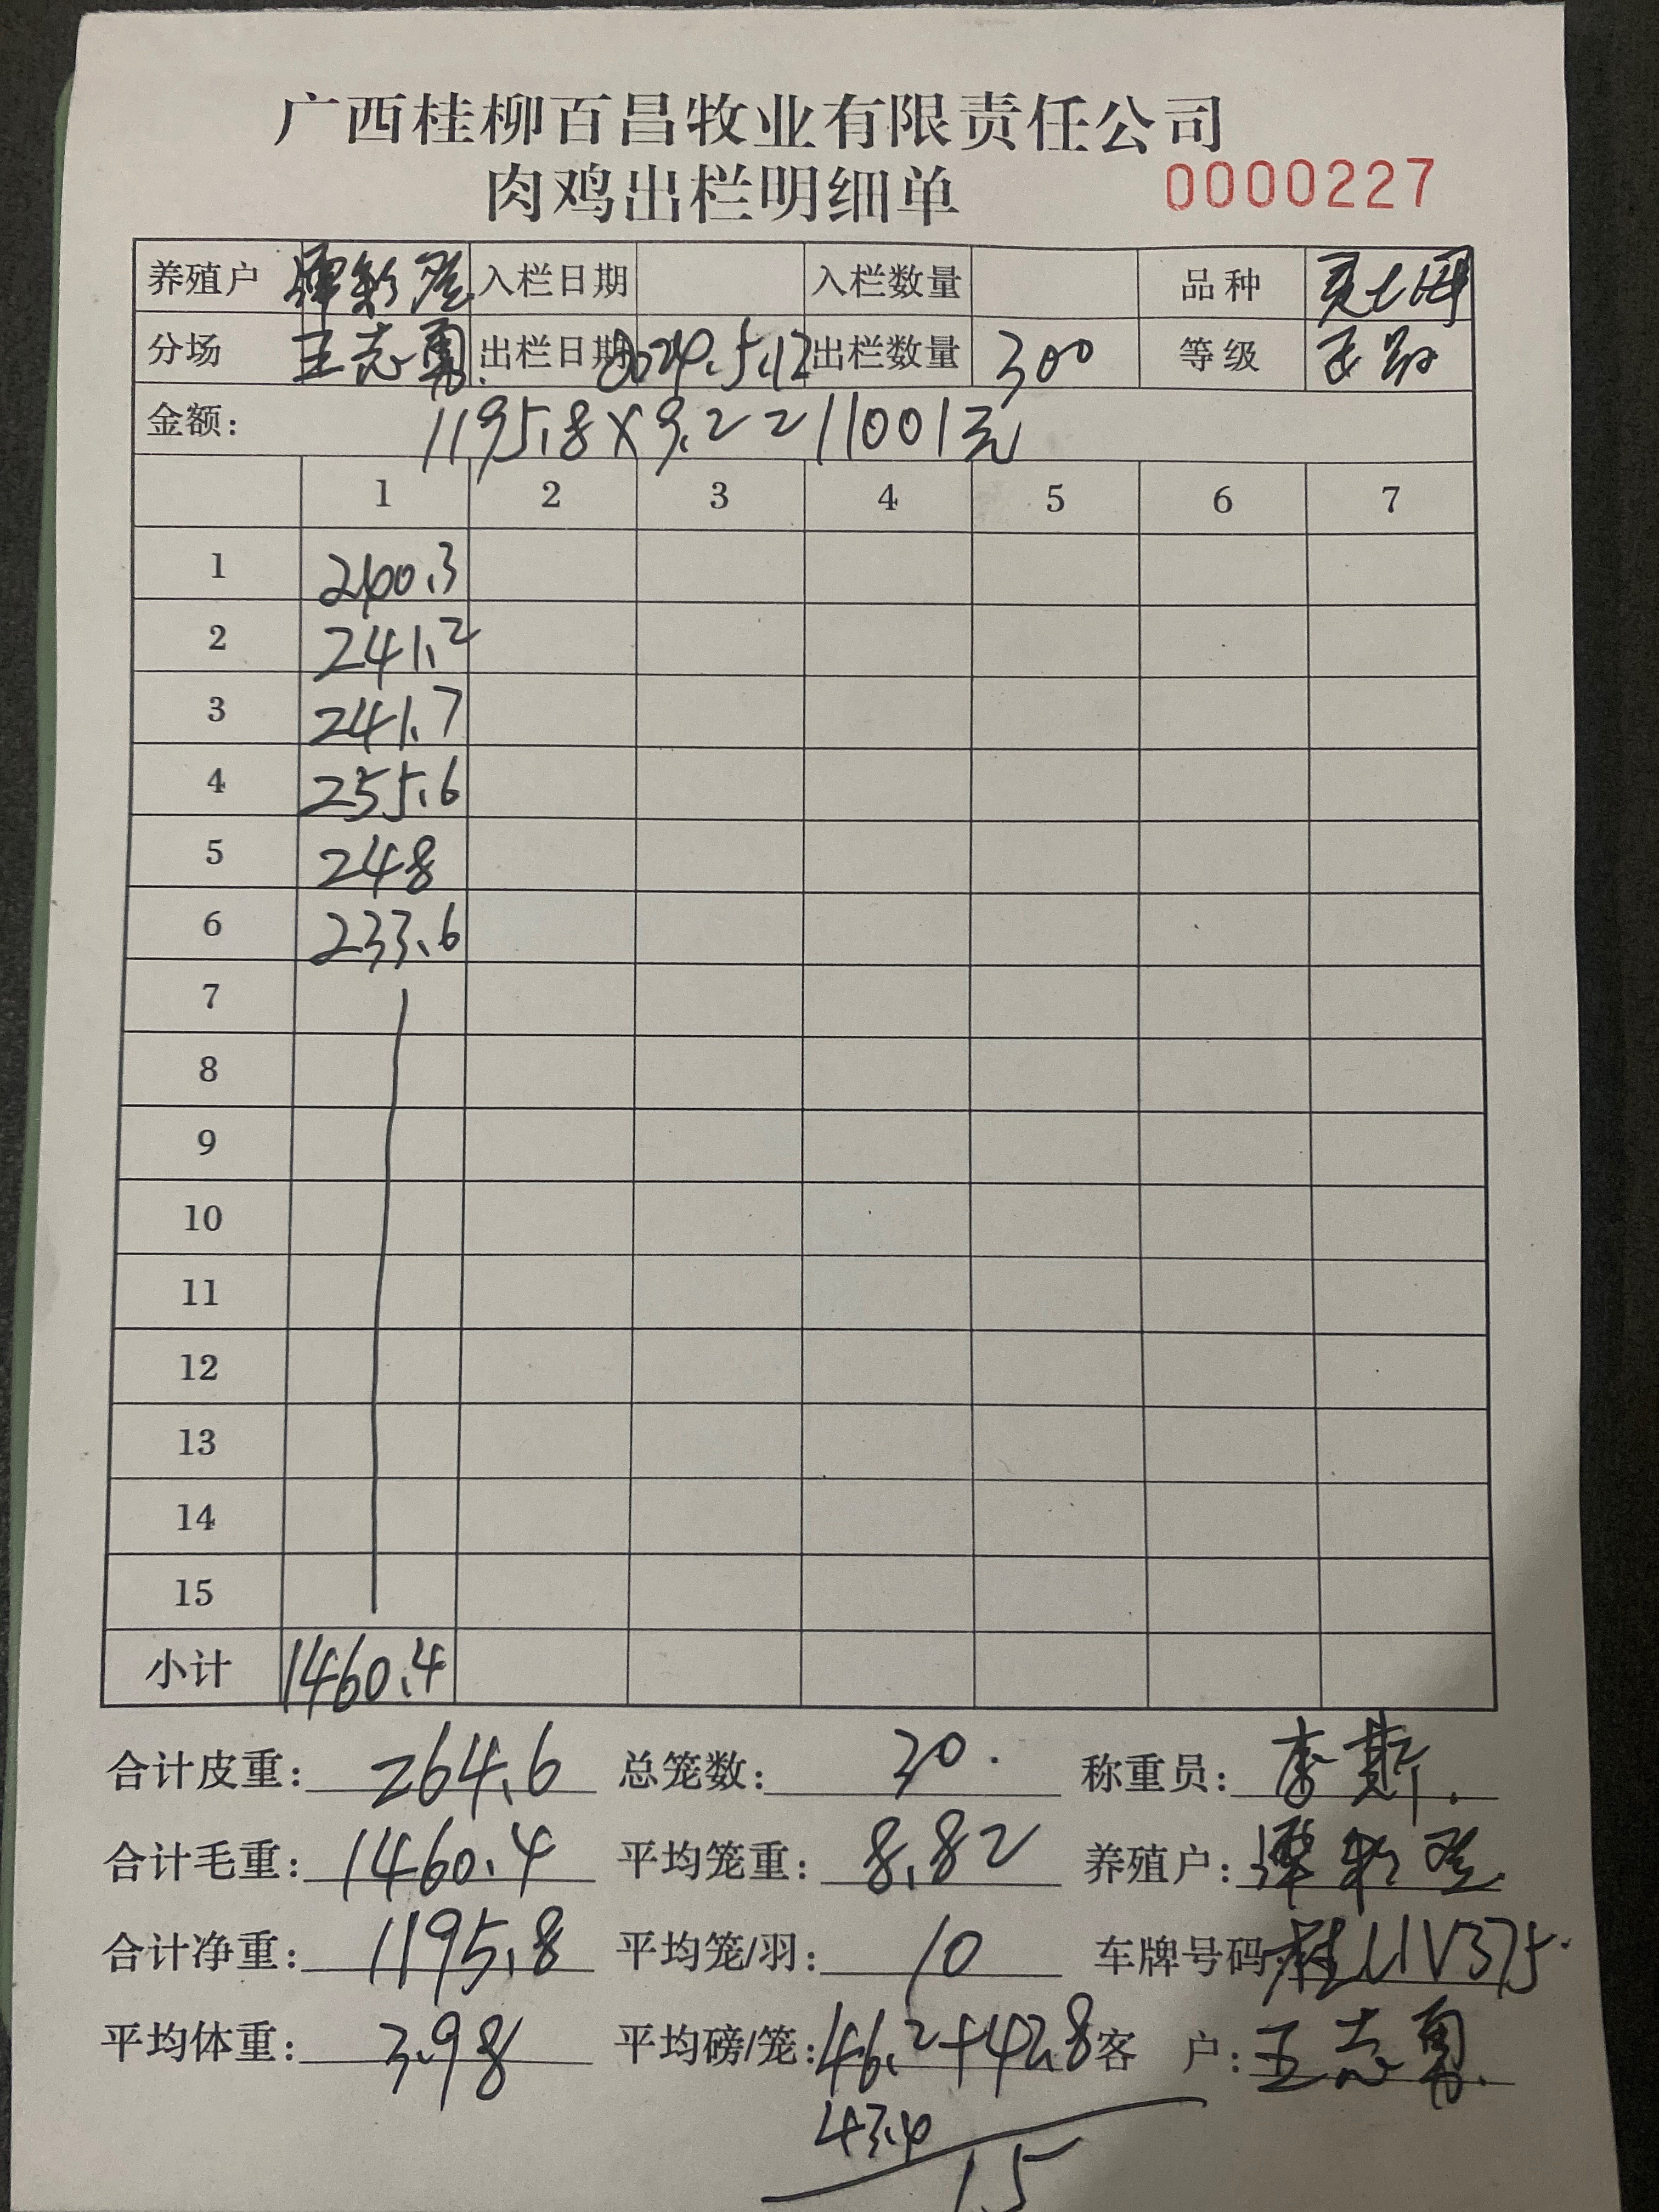 广西桂柳百昌牧业有限责任公司
肉鸡出栏明细单 0000227
养殖户 入栏日期 入栏数量 品种
分场 王志勇. 出栏日期 2024.5.12 出栏数量 300 等级
金额: 1195.8×9.22 11001元
1 2 3 4 5 6 7
1 260.3
2 241.2
3 241.7
4 255.6
5 248
6 233.6
7
8
9
10
11
12
13
14
15
小计 1460.4
合计皮重: 264.6 总笼数: 30. 称重员: 李斯.
合计毛重: 1460.4 平均笼重: 8.82 养殖户:
合计净重: 1195.8 平均笼/羽: 10 车牌号码: 桂U1V375.
平均体重: 3.98 平均磅/笼: 46.2+42.8 客 户: 王志勇.
43.4
15